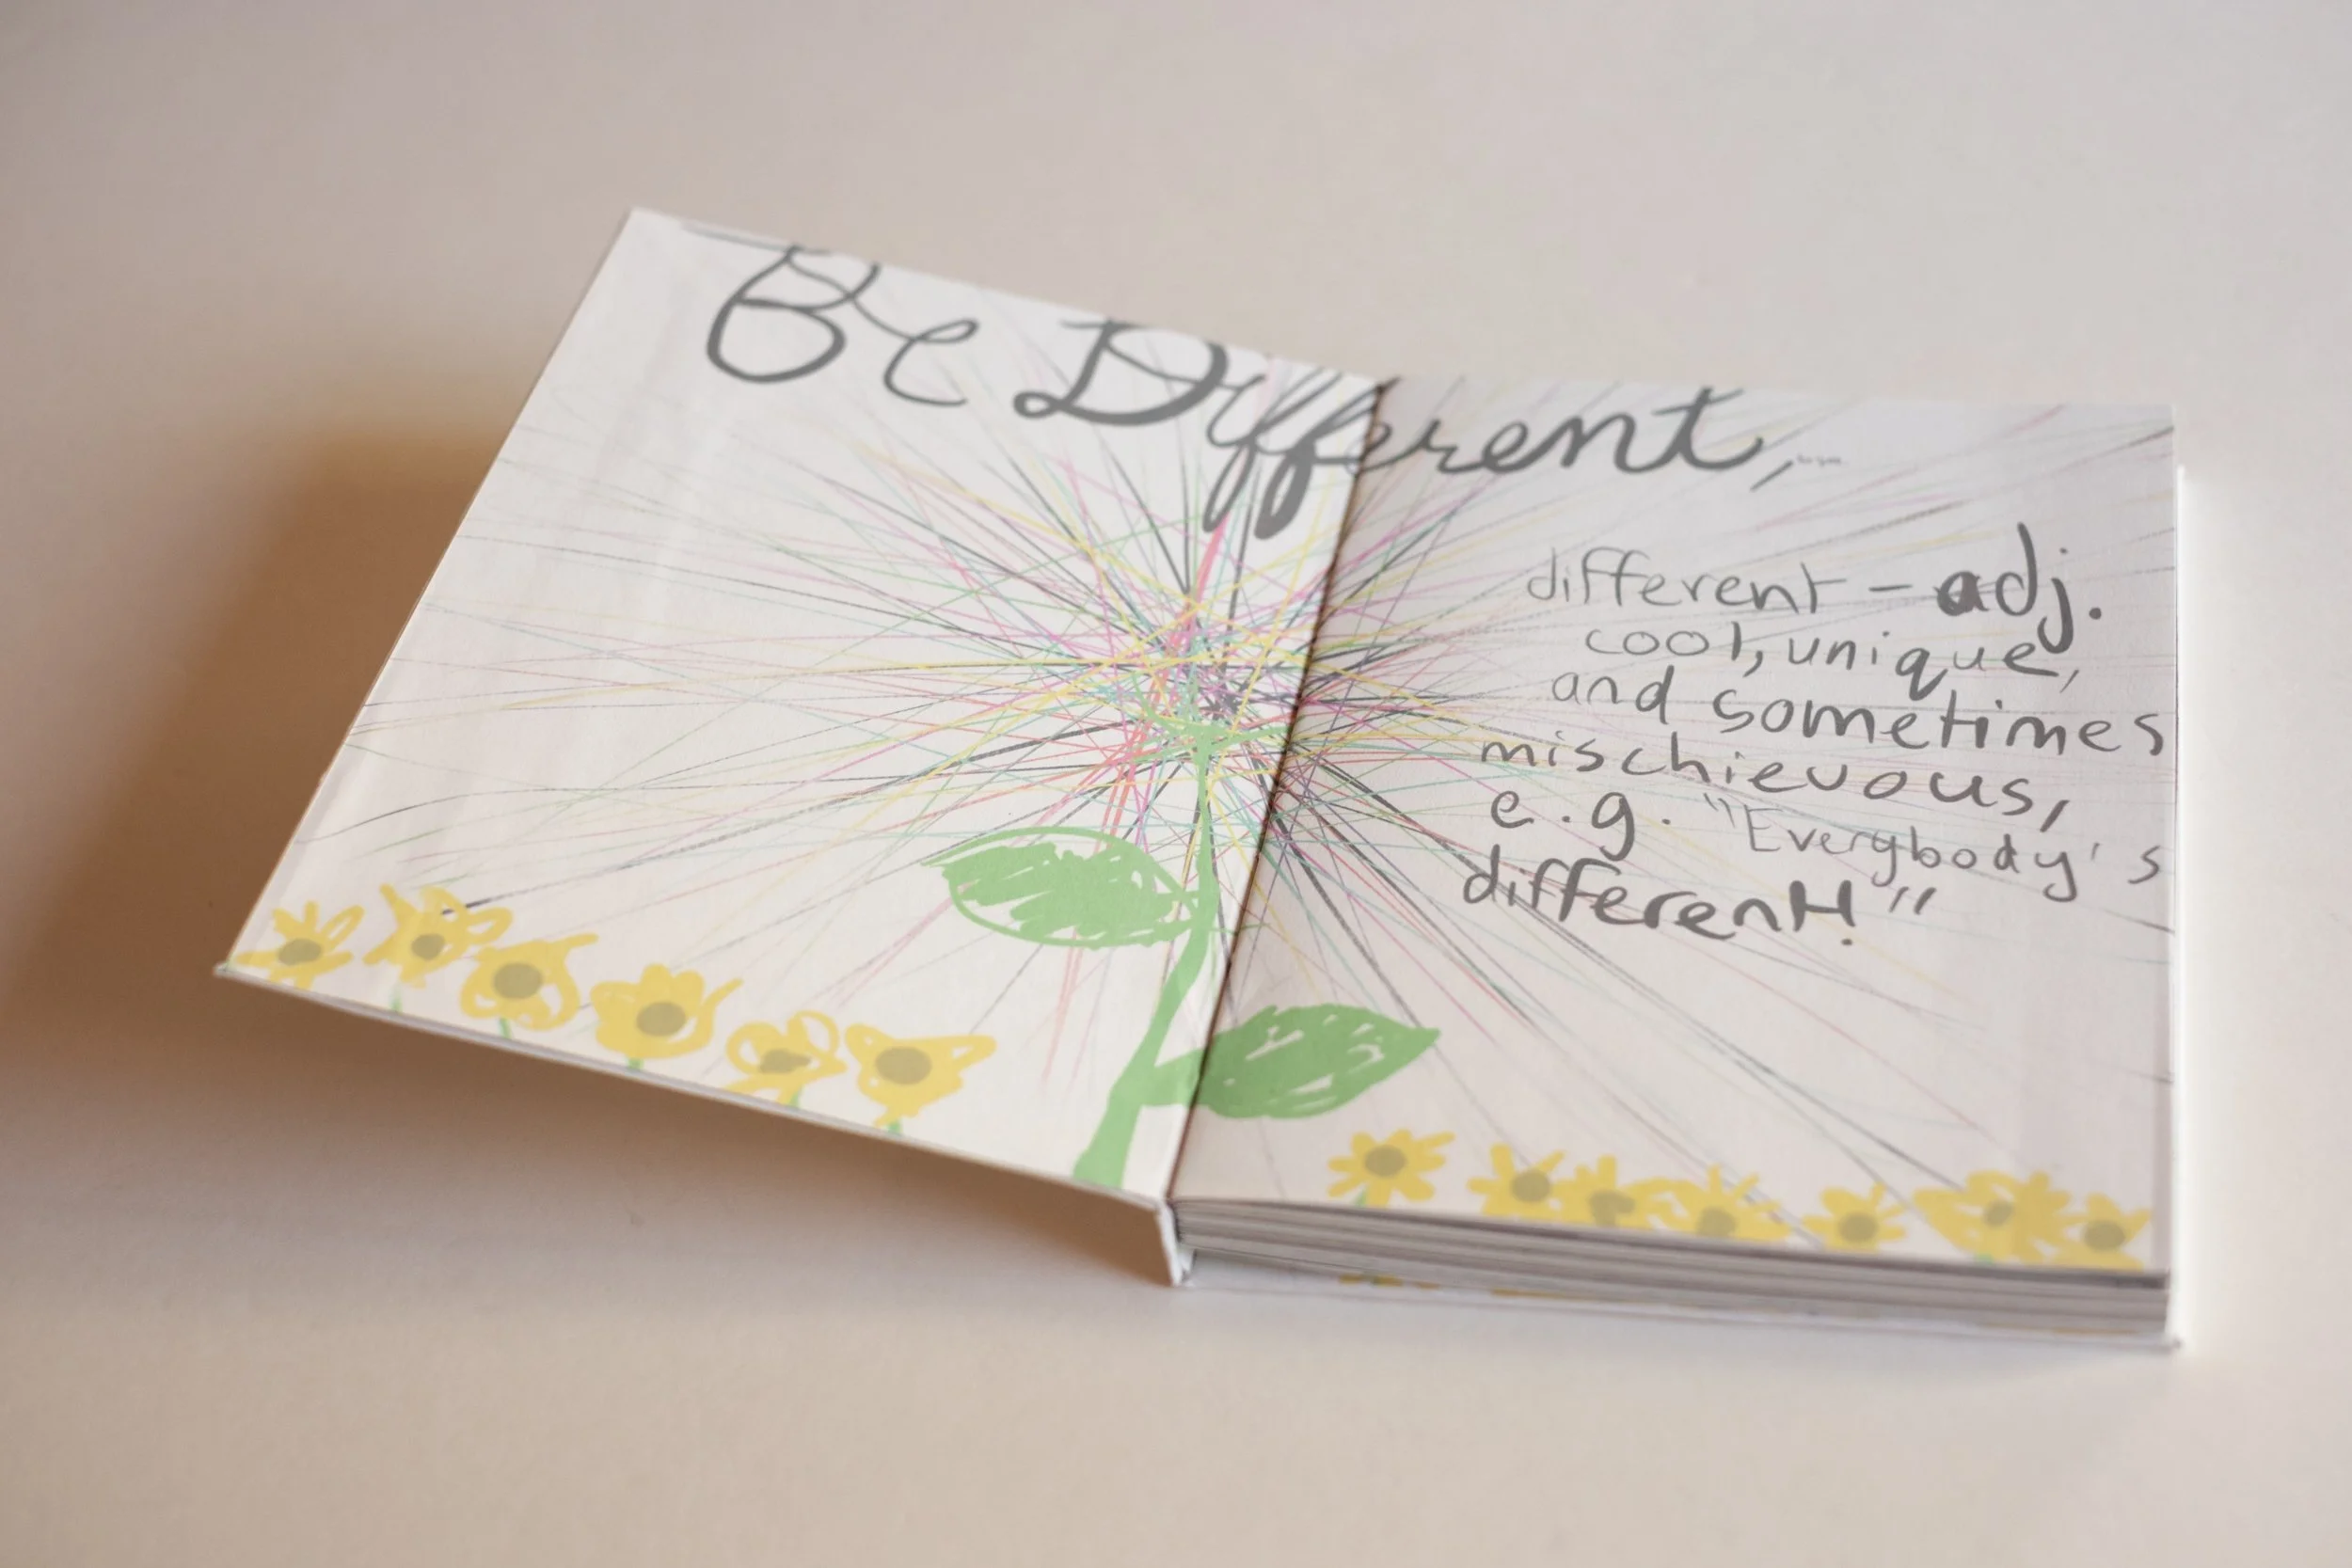 Be Different,
different - adj.
cool, unique,
and sometimes
mischievous,
e.g. "Everybody's
different!"